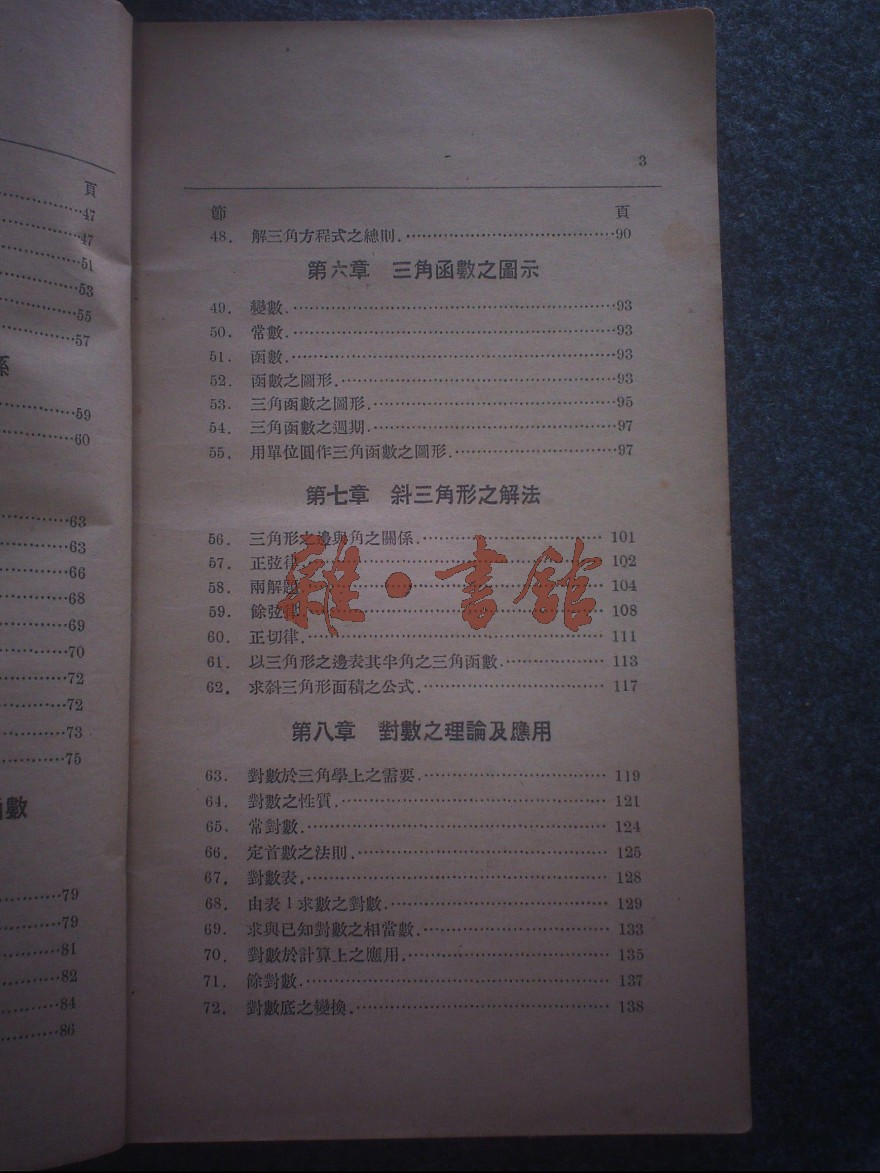 頁
47
47
51
53
55
57
係
59
60
63
63
66
68
69
70
72
72
73
75
函數
79
79
81
82
84
86
3
節 頁
48. 解三角方程式之總則.……90
第六章 三角函數之圖示
49. 變數.……93
50. 常數.……93
51. 函數.……93
52. 函數之圖形.……93
53. 三角函數之圖形.……95
54. 三角函數之週期.……97
55. 用單位圓作三角函數之圖形.……97
第七章 斜三角形之解法
56. 三角形之邊與角之關係.……101
57. 正弦律.……102
58. 兩解題.……104
59. 餘弦律.……108
60. 正切律.……111
61. 以三角形之邊表其半角之三角函數.……113
62. 求斜三角形面積之公式.……117
第八章 對數之理論及應用
63. 對數於三角學上之需要.……119
64. 對數之性質.……121
65. 常對數.……124
66. 定首數之法則.……125
67. 對數表.……128
68. 由表1求數之對數.……129
69. 求與已知對數之相當數.……133
70. 對數於計算上之應用.……135
71. 餘對數.……137
72. 對數底之變換.……138
雜·書館